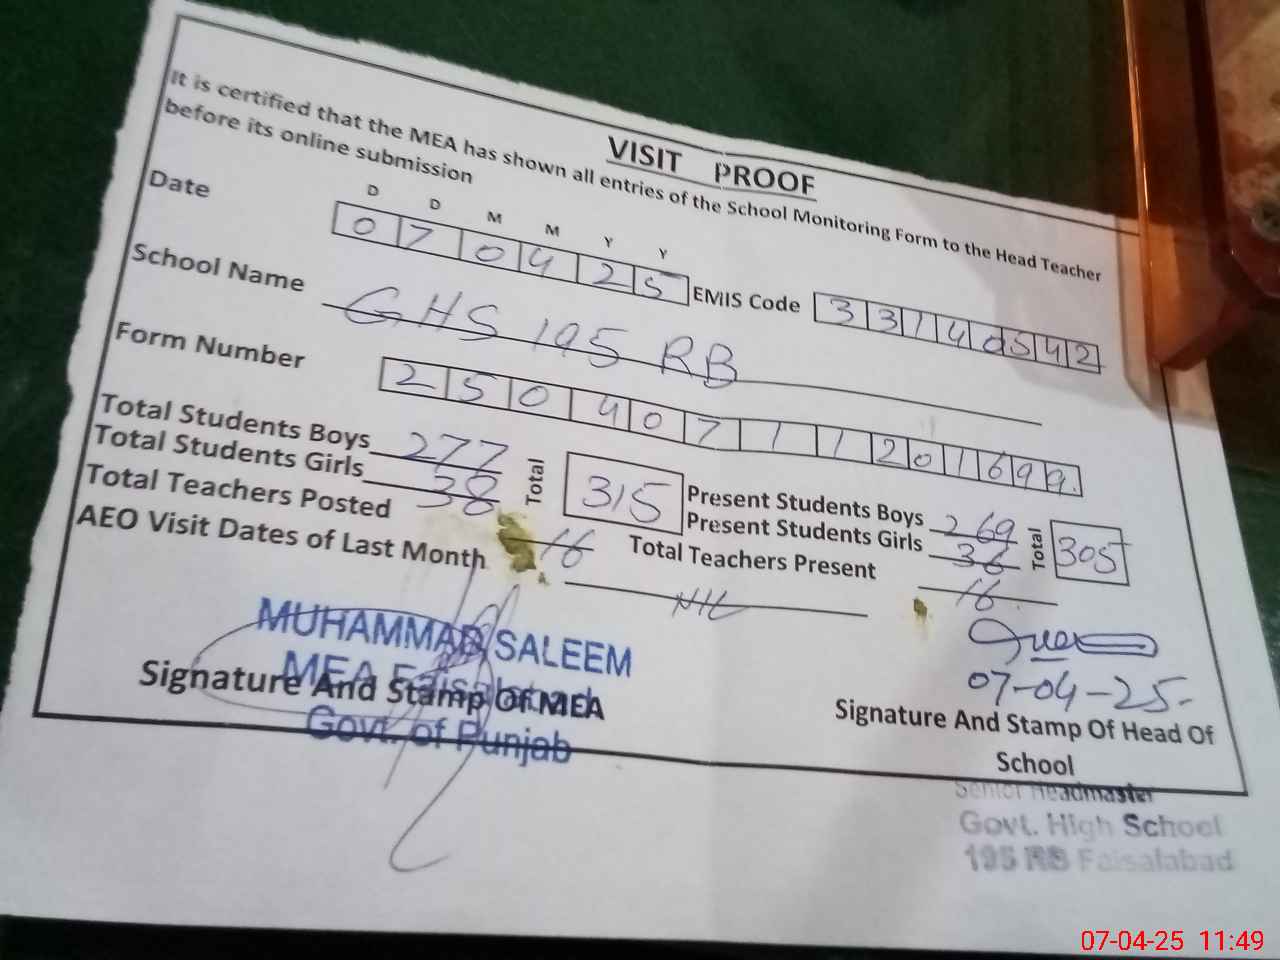 VISIT PROOF
It is certified that the MEA has shown all entries of the School Monitoring Form to the Head Teacher
before its online submission
D D M M Y Y
Date 0 7 0 4 2 5 EMIS Code 3 3 1 4 0 5 4 2
School Name GHS 195 RB
Form Number 2 5 0 4 0 7 1 1 2 0 1 6 9 9
Total Students Boys 277 Total 315 Present Students Boys 269 Total 305
Total Students Girls 38 Present Students Girls 36
Total Teachers Posted 16 Total Teachers Present 16
AEO Visit Dates of Last Month NIL
MUHAMMAD SALEEM
MEA Faisalabad
Govt. of Punjab
Signature And Stamp Of MEA
07-04-25
Signature And Stamp Of Head Of
School
Senior Headmaster
Govt. High School
195 RB Faisalabad
07-04-25 11:49